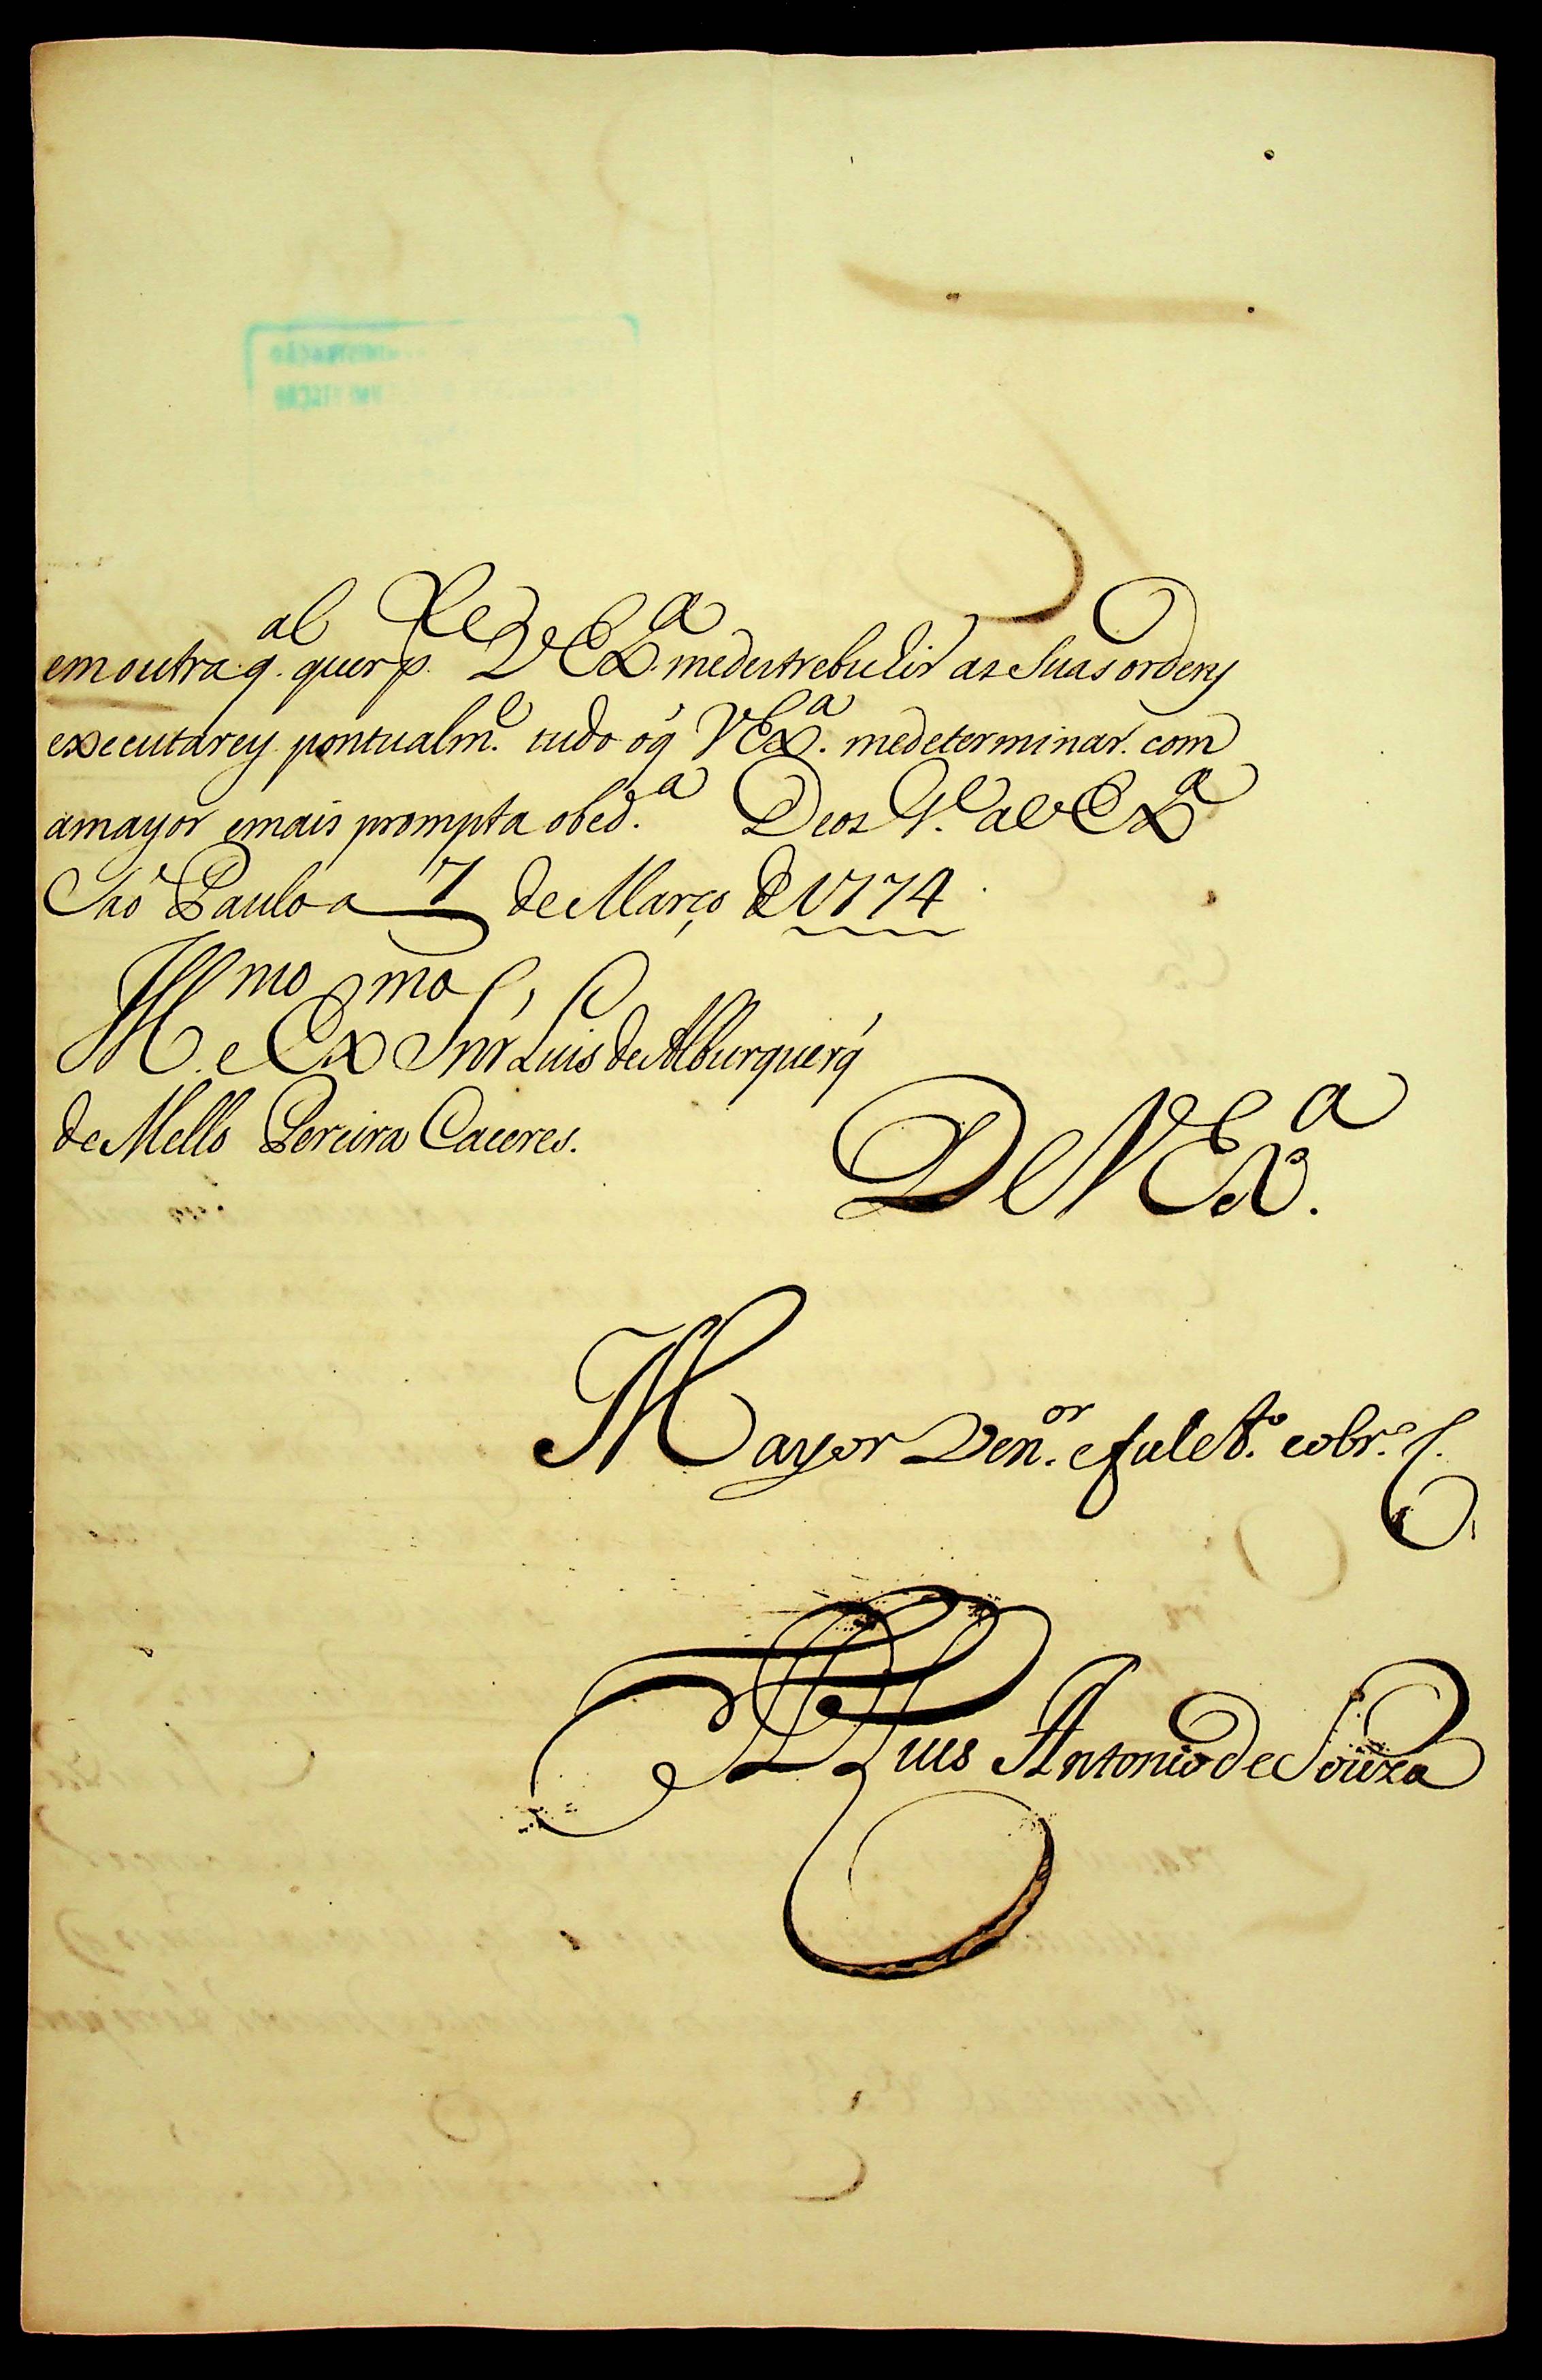 em outra q.al quer p.te VEX.a me destrebulir as Suas ordens
executarey pontualm.e tudo o q̃ VEx.a me determinar. com
a mayor e mais prompta obed.a Deos G.e a VEX.a
São Paulo a 7 de Março de 1774
Ill.mo e Ex.mo Snr' Luis de Alburquerq̃
de Mello Pereira Caceres.
De V Ex.a
Mayor Ven.or e fiel et.o e obr.o S.
Luis Antonio de Souza